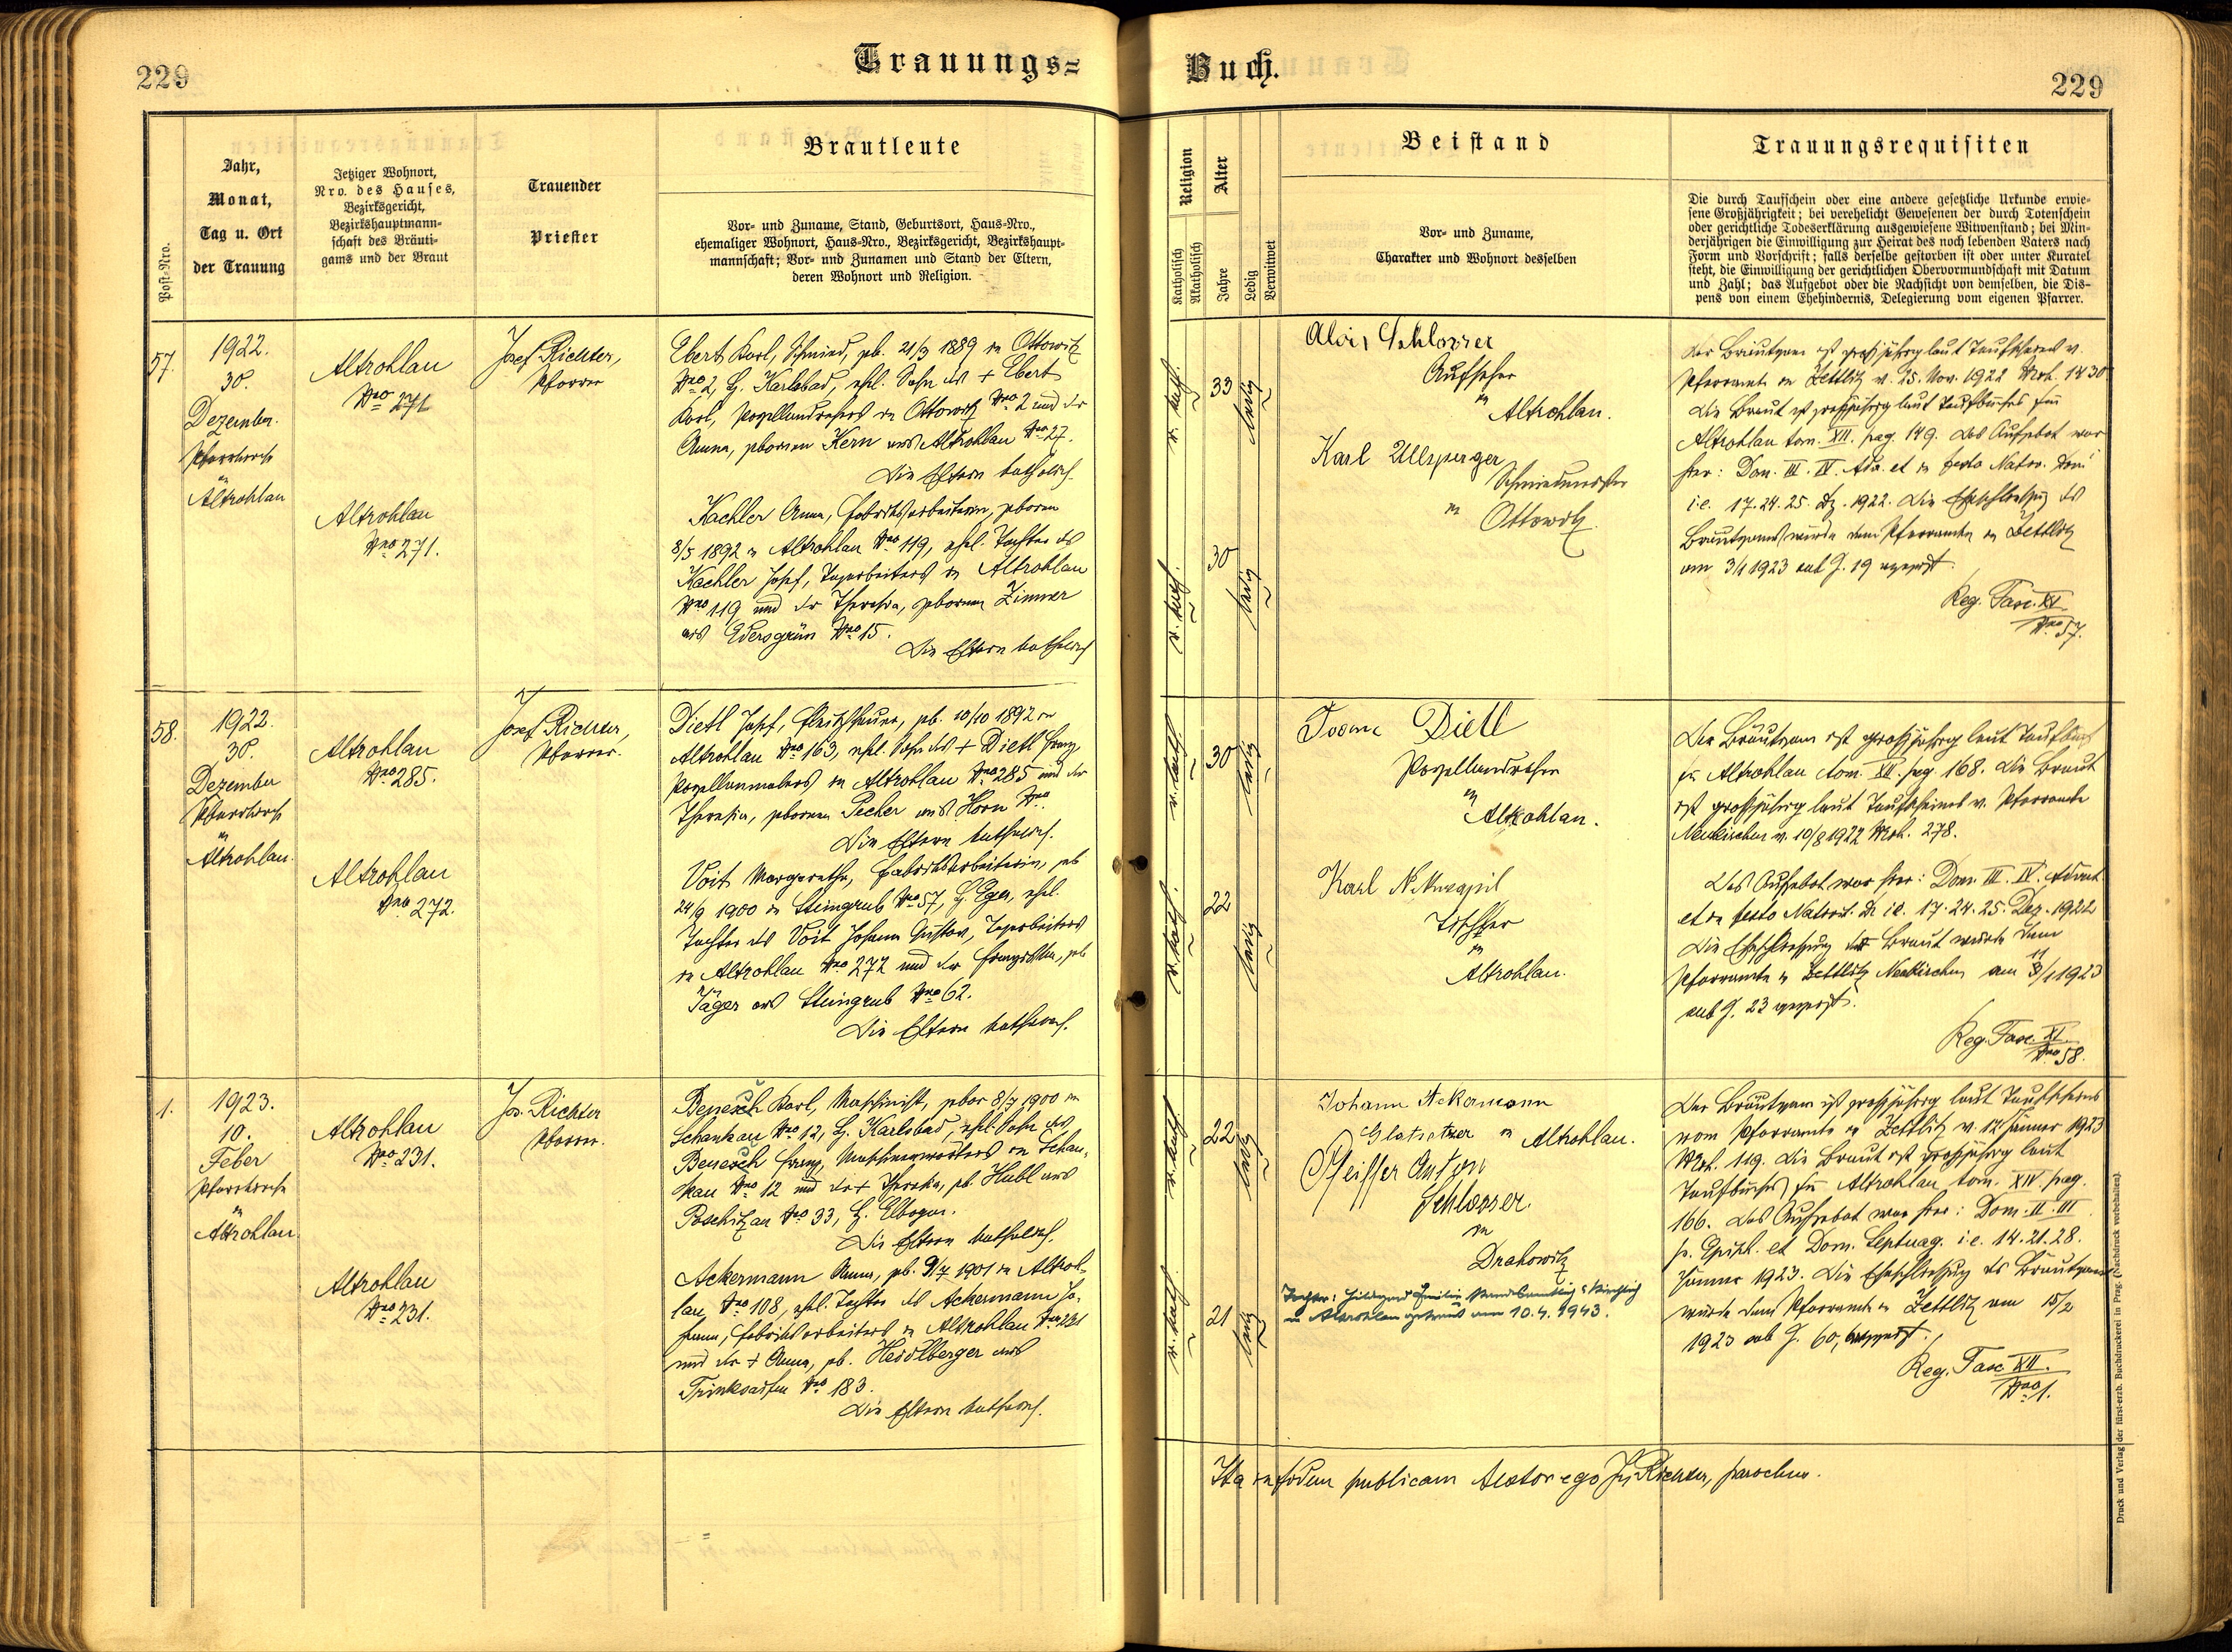 229
Trauungs=
Buch.
229
Post-Nro.
Jahr,
Monat,
Tag u. Ort
der Trauung
Jetziger Wohnort,
Nro. des Hauses,
Bezirksgericht,
Bezirkshauptmann-
schaft des Bräuti-
gams und der Braut
Trauender
Priester
Brautleute
Vor- und Zuname, Stand, Geburtsort, Haus-Nro.,
ehemaliger Wohnort, Haus-Nro., Bezirksgericht, Bezirkshaupt-
mannschaft; Vor- und Zunamen und Stand der Eltern,
deren Wohnort und Religion.
Religion
Katholisch
Akatholisch
Alter
Jahre
Ledig
Verwitwet
Beistand
Vor- und Zuname,
Charakter und Wohnort desselben
Trauungsrequisiten
Die durch Taufschein oder eine andere gesetzliche Urkunde erwie-
sene Großjährigkeit; bei verehelicht Gewesenen der durch Totenschein
oder gerichtliche Todeserklärung ausgewiesene Witwenstand; bei Min-
derjährigen die Einwilligung zur Heirat des noch lebenden Vaters nach
Form und Vorschrift; falls derselbe gestorben ist oder unter Kuratel
steht, die Einwilligung der gerichtlichen Obervormundschaft mit Datum
und Zahl; das Aufgebot oder die Nachsicht von demselben, die Dis-
pens von einem Ehehindernis, Delegierung vom eigenen Pfarrer.
57.
1922.
30.
Dezember.
Pfarrkirche
in
Altrohlau
Altrohlau
Nro 271
Altrohlau
Nro 271.
Josef Richter,
Pfarrer
Ebert Karl, Schmied, geb. 21/3 1889 in Ottowitz
Nro 2, B. Karlsbad, ehel. Sohn des + Ebert
Karl, Porzellandrehers in Ottowitz Nro 2 und der
Anna, geborenen Kern aus Altrohlau Nro 27.
Die Eltern katholisch.
Kachler Anna, Fabriksarbeiterin, geboren
8/5 1892 in Altrohlau Nro 119, ehel. Tochter des
Kachler Josef, Tagarbeiters in Altrohlau
Nro 119 und der Theresia, geborenen Zimmer
aus Edersgrün Nro 15.
Die Eltern katholisch
r. kath.
33
ledig
r. kath.
30
ledig
Alois Schlosser
Aufseher
in
Altrohlau.
Karl Ullsperger
Schmiedmeister
in Ottowitz.
Der Bräutigam ist großjährig laut Taufscheines v.
Pfarramte in Zettlitz v. 25. Nov. 1922 Mob. 1430
Die Braut ist großjährig laut Taufbuches für
Altrohlau tom. XII. pag. 149. Das Aufgebot war
hier: Dom. III. IV. Adv. et in festo Nativ. Domi
i.e. 17. 24. 25. Dz. 1922. Die Eheschließung des
Bräutigams wurde dem Pfarramte in Zettlitz
am 3/1 1923 sub J. 19 angezeigt.
Reg. Fasc. XI.
Nro 57.
58.
1922.
30.
Dezember
Pfarrkirche
in
Altrohlau.
Altrohlau
Nro 285.
Altrohlau
Nro 272.
Josef Richter,
Pfarrer.
Dietl Josef, Fleischhauer, geb. 10/10 1892 in
Altrohlau Nro 163, ehel. Sohn des + Dietl Franz,
Porzellanmalers in Altrohlau Nro 285 und der
Theresia, geborenen Pecher aus Horn Nro
Die Eltern katholisch.
Voit Margarethe, Fabriksarbeiterin, geb
24/9 1900 in Steingrub Nro 57, B. Eger, ehel.
Tochter des Voit Johann Gustav, Tagarbeiters
in Altrohlau Nro 272 und der geb
Jäger aus Steingrub Nro 62.
Die Eltern katholisch.
r. kath.
30
ledig
r. kath.
22
ledig
Dietl
Porzellandreher
in
Altrohlau.
Karl
Tischler
in
Altrohlau.
Der Bräutigam ist großjährig laut Taufbuch
für Altrohlau tom. XII. pag 168. Die Braut
ist großjährig laut Taufscheines v. Pfarramte
Neukirchen v. 10/8 1922 Mob. 278.
Das Aufgebot war hier: Dom. III. IV. Advent.
et in festo Nativit. D. i.e. 17. 24. 25. Dez. 1922
Die Eheschließung der Braut wurde dem
Pfarramte in Zettlitz Neukirchen am /1 1923
sub J. 23 angezeigt.
Reg. Fasc. XI.
Nro 58.
1.
1923.
10.
Feber
Pfarrkirche
in
Altrohlau.
Altrohlau
Nro 231.
Altrohlau
Nro 231.
Jos. Richter
Pfarrer.
Benesch Karl, Maschinist, gebor 8/7 1900 in
Schankau Nro 12, B. Karlsbad, ehel. Sohn des
Benesch Franz, Maschinenwärters in Schan-
kau Nro 12 und der + Theresia, geb. Hubl aus
Poschitzau Nro 33, B. Elbogen.
Die Eltern katholisch.
Ackermann Anna, geb. 9/7 1901 in Altroh-
lau, Nro 108, ehel. Tochter des Ackermann Jo-
hann, Fabriksarbeiters in Altrohlau Nro 231
und der + Anna, geb. Heidlberger aus
Trinksaifen Nro 183.
Die Eltern katholisch.
r. kath.
22
ledig
r. kath.
21
ledig
Johann Ackermann
Glasetzer in Altrohlau.
Pfeiffer Anton
Schlosser.
in
Drahowitz
Tochter: Hildegard Emilie standesamtlich u. kirchlich
in Altrohlau getraut am 10.4.1943.
Der Bräutigam ist großjährig laut Taufscheines
vom Pfarramte in Zettlitz v. 12 Jänner 1923
Mob. 119. Die Braut ist großjährig laut
Taufbuches für Altrohlau tom. XIV. pag.
166. Das Aufgebot war hier: Dom. II. III
p. Epiph. et Dom. Septuag. i.e. 14. 21. 28.
Jänner 1923. Die Eheschließung des Bräutigams
wurde dem Pfarramte in Zettlitz am 15/2
1923 sub J. 60, angezeigt.
Reg. Fasc XII.
Nro 1.
Ita in fidem publicam testor ego Jos. Richter, parochus.
Druck und Verlag der fürst-erzb. Buchdruckerei in Prag. (Nachdruck verbehalten).